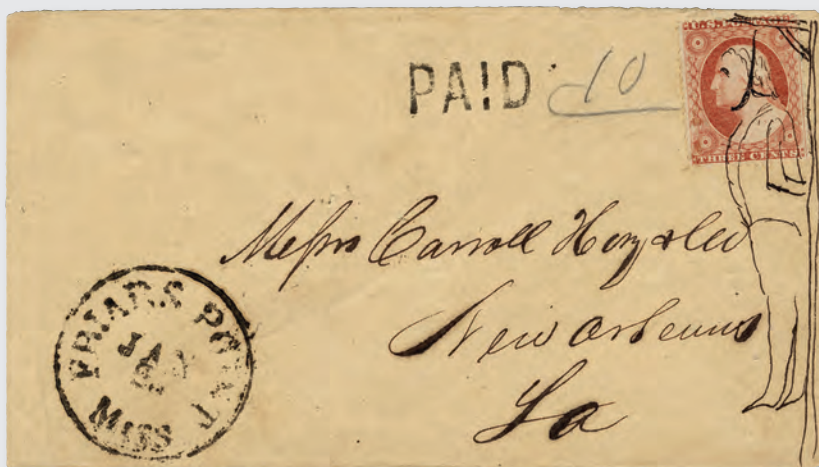 PAID 10
THREE CENTS
Messrs Carroll Hoy & Co
New Orleans
La
FRIARS POINT
JAN
MISS